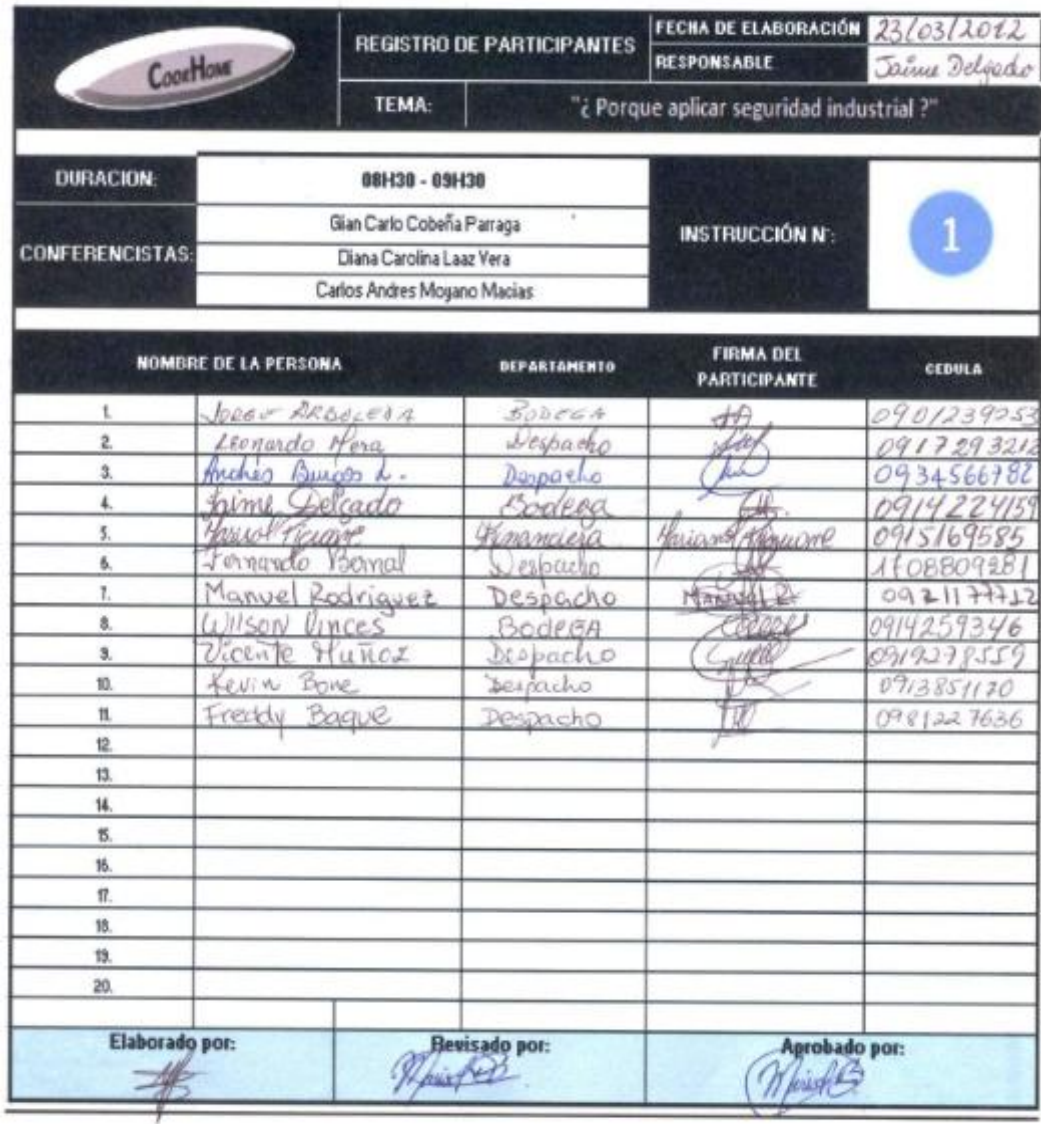 CodeHome
REGISTRO DE PARTICIPANTES
FECHA DE ELABORACIÓN 23/03/2012
RESPONSABLE Jaime Delgado
TEMA: "¿ Porque aplicar seguridad industrial ?"
DURACION: 08H30 - 09H30
CONFERENCISTAS:
Gian Carlo Cobeña Parraga
Diana Carolina Laaz Vera
Carlos Andres Moyano Macias
INSTRUCCIÓN N°: 1
NOMBRE DE LA PERSONA DEPARTAMENTO FIRMA DEL PARTICIPANTE CEDULA
1. Jorge Arboleda Bodega 0901239253
2. Leonardo Mera Despacho 0917293212
3. Andrés Burgos L. Despacho 0934566782
4. Jaime Delgado Bodega 0914224159
5. Financiera 0915169585
6. Fernando Bernal Despacho 1708809281
7. Manuel Rodriguez Despacho Manuel R. 0921177712
8. Wilson Vinces BodeGA 0914259346
9. Vicente Muñoz Despacho 0919278559
10. Kevin Bone Despacho 0913851120
11. Freddy Baque Despacho 0981227636
12.
13.
14.
15.
16.
17.
18.
19.
20.
Elaborado por: Revisado por: Aprobado por: